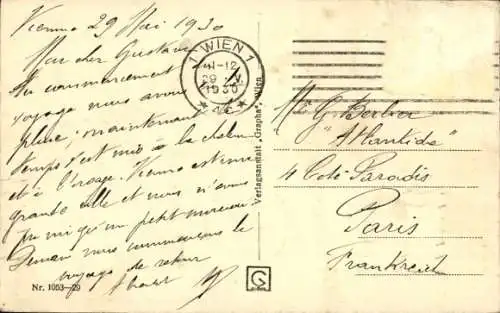 Vienne 29 Mai 1930
Mon cher Gustave
Au commencement
voyage nous avons
pluie; maintenant
temps s'est mis à la chaleur
et à l'orage. Vienne est une
grande ville et nous n'avons
vu qu'un petit morceau.
Demain nous commençons le
voyage de retour
Nr. 1053—29
1 WIEN 1
29 V
1930
Verlagsanstalt „Grapha“, Wien
G
Mr G. Berber
"Atlantide"
4 Cité Paradis
Paris
Frankreich